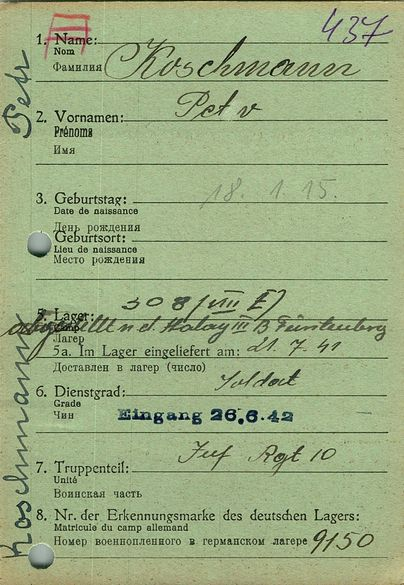 437
1. Name: Koschmann
Nom
Фамилия
Petr
2. Vornamen: Petr
Prénoms
Имя
3. Geburtstag: 18. 1. 15.
Date de naissance
День рождения
Geburtsort:
Lieu de naissance
Место рождения
5. Lager: 308 (VIII E)
n. d. Stalag III B Fürstenberg
Лагерь
5a. Im Lager eingeliefert am: 21. 7. 41
Доставлен в лагерь (число)
6. Dienstgrad: Soldat
Grade
Чин
Eingang 26.6.42
7. Truppenteil: Inf Rgt 10
Unité
Воинская часть
8. Nr. der Erkennungsmarke des deutschen Lagers:
Matricule du camp allemand
Номер военнопленного в германском лагере 9150
Koschmann